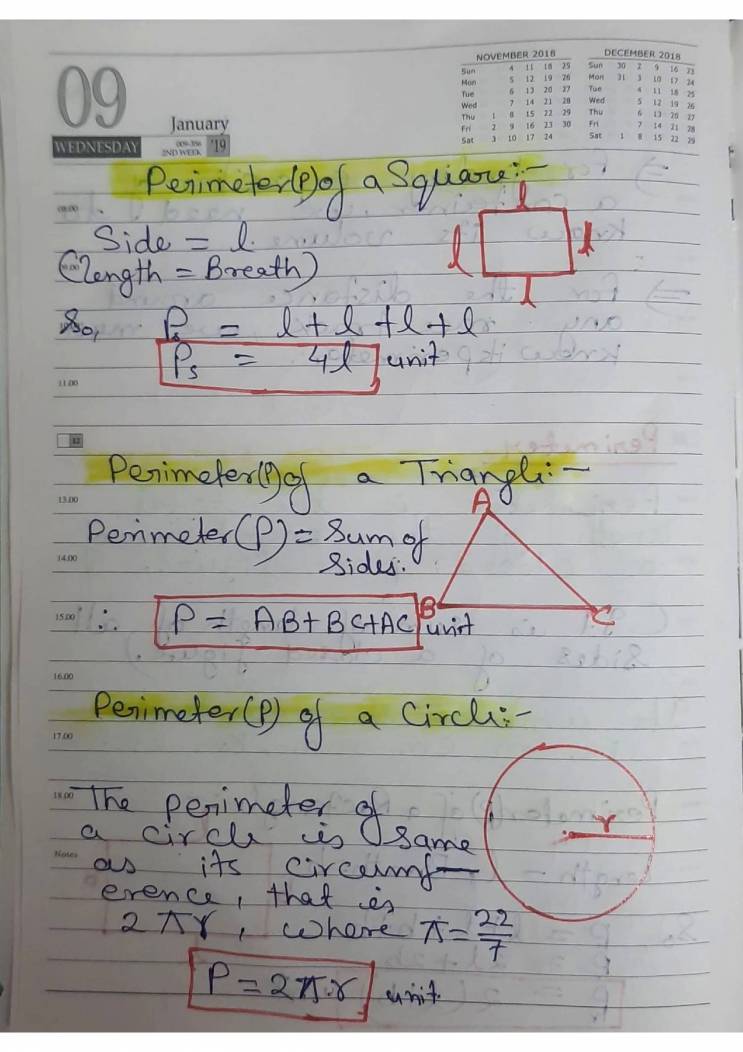 09
January
WEDNESDAY
009-356
2ND WEEK
'19
NOVEMBER 2018
Sun 4 11 18 25
Mon 5 12 19 26
Tue 6 13 20 27
Wed 7 14 21 28
Thu 1 8 15 22 29
Fri 2 9 16 23 30
Sat 3 10 17 24
DECEMBER 2018
Sun 30 2 9 16 23
Mon 31 3 10 17 24
Tue 4 11 18 25
Wed 5 12 19 26
Thu 6 13 20 27
Fri 7 14 21 28
Sat 1 8 15 22 29
Perimeter(P) of a Square:-
09.00
Side = l
l
l
l
l
(length = Breath)
So, Ps = l+l+l+l
Ps = 4l unit
11.00
12
Perimeter(P) of a Triangle:-
13.00
A
Perimeter(P) = Sum of
14.00
Sides.
B
C
15.00
∴ P = AB+BC+AC unit
16.00
Perimeter(P) of a Circle:-
17.00
18.00
The perimeter of
r
a circle is same
Notes
as its circumf-
erence, that is
2πr, where π=22/7
P = 2π.r unit